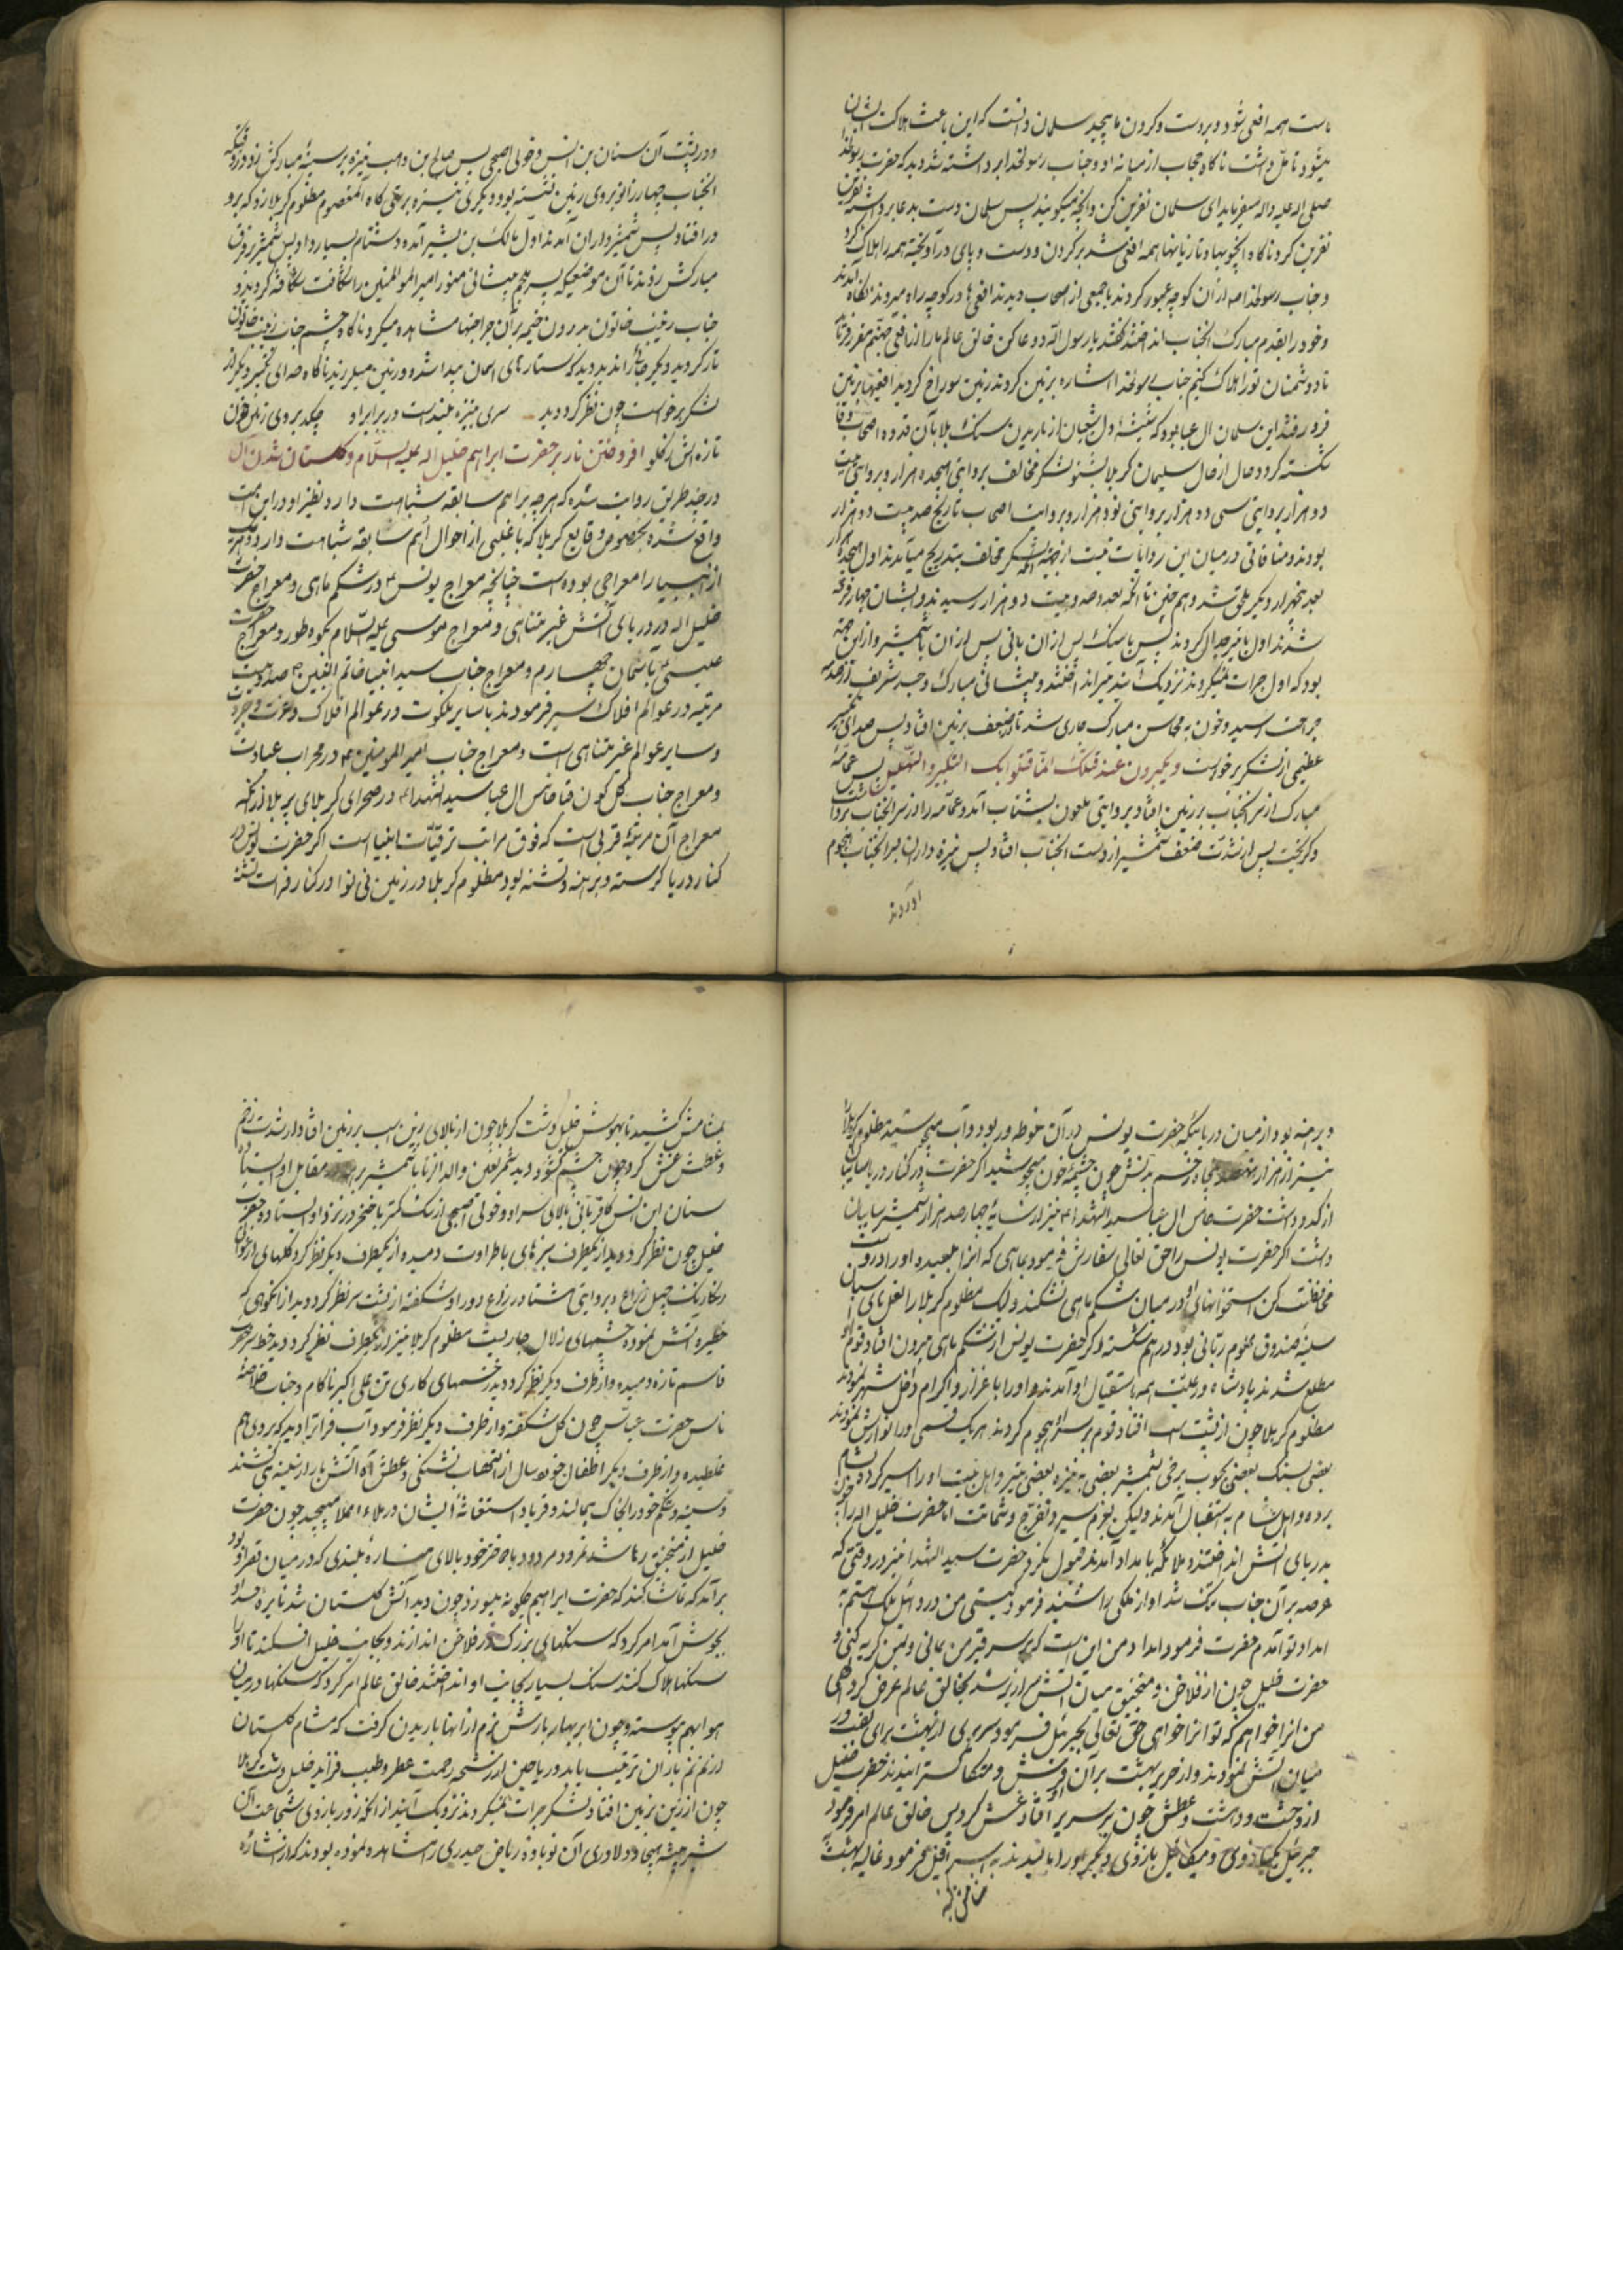 ماست همه افعی شود و بر دست و گردن ما پیچید سلمان دانست که این باعث هلاکت ایشان
میشود تأمل داشت ناگاه حجاب از میانه او و جناب رسولخدا برداشته شد دید که حضرت رسولخدا
صلی اله علیه و اله میفرماید ای سلمان نفرین کن و آنچه میگویند پس سلمان دست بدعا برداشته نفرین
نفرین کرد ناگاه آن چوبها و تازیانها همه افعی شد بر گردن و دست و پای در آویخته همه را هلاک کرد
و جناب رسولخدا ص از آن کوچه عبور کردند با جمعی از اصحاب دیدند افعی ها در کوچه راه میروند
و خود را بقدم مبارک انجناب انداختند گفتند یا رسول الله دعا کن خالق عالم ما را از افعی جهنم مقرر فرماید
تا دشمنان تو را هلاک کنیم جناب رسولخدا اشاره بزمین کردند زمین سوراخ گردید افعیها بزمین
فرو رفتند این سلمان ال عبا بود که شیشه اول شعبان از باریدن سنک بلا بآن قدوه اصحاب وفا
شکسته گردد حال از حال سلیمان کربلا بشنو لشکر مخالف بروایتی هیجده هزار و بروایتی بیست
دو هزار بروایتی سی و دو هزار بروایتی نود هزار و بروایت اصحاب تاریخ صد بیست دو هزار
بودند و منافاتی در میان این روایات نیست از جهة آنکه لشکر مخالف بتدریج میآمدند اول هیجده هزار
بعد پنجهزار دیگر ملحق شد و هم چنین تا آنکه بعدد صد و بیست دو هزار رسیدند و ایشان چهار فرقه
شدند اول با تیر جدال کردند پس با سنک پس از آن با نی پس از آن با شمشیر و از این جهة
بود که اول جرات نمیکردند نزدیک آیند تیر انداختند و پیشانی مبارک و جسد شریف از صدمه
جراحت رسید و خون به محاسن مبارک جاری شد تا از ضعف بزمین افتاد پس صدای تکبیر
عظیمی از لشکر برخواست و یکبرون عند قتلک انما قتلوا بک التکبیر و التهلیل پس عمامه
مبارک از سر انجناب بر زمین افتاد بروایتی ملعون بشتاب آمد و عمامه را از سر انجناب برداشت
و گریخت پس از شدت ضعف شمشیر از دست انجناب افتاد پس نیزه داران بر انجناب هجوم
آوردند
و در پشت آن سنان بن انس و خولی اصبحی پس صالح بن وهب نیزه بر سینهٔ مبارکش زد در وقتیکه
انجناب چهار زانو بروی زمین نشسته بود و دیگری نیزه بر تهی گاه آنمعصوم مظلوم کربلا زد که برو
در افتاد پس شمشیر داران آمدند اول مالک بن بشیر آمده دشنام بسیار داد پس شمشیر بر فرق
مبارکش زدند تا آن موضعیکه پسر ملجم پیشانی منور امیر المؤمنین را شکافت شکافته کردند و
جناب زینب خاتون بدرون خیمه بر آن جراحتها مشاهده میکرد ناگاه چشم جناب زینب خاتون
تار گردید و دیگر جائی را ندید دید که ستاره های اسمان پیدا شده و زمین میلرزید ناگاه صدای تکبیر دیگر از
لشکر برخواست چون نظر کرد دید سری به نیزه بلند است در برابر او چکد بروی زمین خون
تازه اش از گلو افروختن نار بر حضرت ابراهیم خلیل اله علیه السلام و گلستان شدن آن
در چند طریق روایت شده که هر چه بر امم سابقه شباهت دارد نظیر او در این امت
واقع شده بخصوص وقایع کربلا که با غلبی از احوال امم سابقه شباهت دارد و هر یک
از انبیا را معراجی بوده است چنانچه معراج یونس ع در شکم ماهی و معراج حضرت
خلیل اله در دریای آتش غیر متناهی و معراج موسی علیه السلام بکوه طور و معراج حضرت
عیسی ع باسمان چهارم و معراج جناب سید انبیا خاتم النبیین ص صد و بیست
مرتبه در عوالم افلاک سیر فرمودند با سایر ملکوت در عوالم افلاک
و سایر عوالم غیر متناهی است و معراج جناب امیر المومنین ع در محراب عبادت
و معراج جناب گلگون قبا خامس ال عبا سید الشهداء در صحرای کربلای پر بلا زیرا که
معراج آن مرتبه قربی است که فوق مراتب ترقیات انبیا است اگر حضرت یونس در
کنار دریا گرسته و برهنه و تشنه بود مظلوم کربلا در زمین نی نوا در کنار فرات تشنه
و برهنه بود از میان دریائیکه حضرت یونس در آن غوطه ور بود و آب میجوشید مظلوم کربلا
نیز از هزار نهصد پنجاه زخم بدنش چون چشمهٔ خون میجوشید اگر حضرت در کنار دریا سایبان
از کدو داشت حضرت خامس ال عبا سید الشهداء نیز از سایه چهار صد هزار شمشیر سایبان
داشت اگر حضرت یونس را حق تعالی سفارش فرمود بماهی که انرا بلعیده او را درست
محافظت کن استخوانهای او در میان شکم ماهی نشکند ولیک مظلوم کربلا را نعل پای اسبان
سینهٔ صندوق علوم ربانی بود در هم شکسته و گر حضرت یونس از شکم ماهی بیرون افتاد قوم او
مطلع شدند پادشاه و رعیت همه باستقبال او آمدند و او را با عزاز و اکرام داخل شهر نمودند
مظلوم کربلا چون از پشت اسب افتاد قوم بر سر او هجوم کردند هر یک قسمی او را نوازش نمودند
بعضی بسنک بعضی بچوب برخی بشمشیر بعضی به نیزه بعضی بتیر و اهل بیت او را اسیر کرده بشام
برده و اهل شام به استقبال آمدند ولیکن بعزم سیر و تفرج و شماتت اما حضرت خلیل اله را چون
بدریای آتش انداختند ملائکه بامداد آمدند قبول نکرد حضرت سید الشهدا نیز در وقتی که
عرصه بر آن جناب تنک شد اواز ملکی را شنید فرمود کیستی من دردائیل ملک هستم به
امداد تو آمدم حضرت فرمود امداد من این است که بر سر قبر من بمانی و بمن گریه کنی و
حضرت خلیل چون از فلاخن و منجنیق میان آتش سرازیر شد بخالق عالم عرض کرد الهی
من انرا خواهم که تو انرا خواهی حق تعالی بجبرئیل فرمود سریری از بهشت برای نشستن در
میان آتش نمودند و از حریر بهشت بر آن فرش و متکا گسترانیدند حضرت خلیل
از وحشت و دهشت و عطش چون بر سریر افتاد غش کرد پس خالق عالم امر فرمود
جبرئیل یکبازوی و میکائیل بازوی دیگر او را مالیدند به اسرافیل فرمود غالیه بهشت
بمشامش کشید تا بهوش خلیل دشت کربلا چون از بالای زین اسب بر زمین افتاد از شدت زخم
و عطش غش کرد چون چشم گشود دید شمر لعین والد الزنا با شمشیر برهنه مقابل او ایستاده
سنان ابن انس کافر بالای سر او و خولی اصبحی از سک کمتر با خنجر در نزد او ایستاده حضرت
خلیل چون نظر کرد دید از یکطرف سبزهای با طراوت دمیده از یکطرف دیگر نظر کرد گلهای ارغوان
رنگارنک چهل زراع و بروایتی هشتاد زراع دور او شکفته از پشت سر نظر کرد دید از انکوهی که
حظیره آتش نموده چشمهای زلال جاریست مظلوم کربلا نیز از یکطرف نظر کرد دید خط سر حضرت
قاسم تازه دمیده و از طرف دیگر نظر کرد دید زخمهای کاری تن علی اکبر ناکام و جناب خلاصهٔ
ناس حضرت عباس چون گل شکفته و از طرف دیگر نظر فرمود آب فرات را دید که بروی هم
میغلطیده و از طرف دیگر اطفال خورد سال از التهاب تشنگی و عطش آه آتش بار از سینه می کشند
و سینه و شکم خود را بخاک میمالند و فریاد استغاثهٔ ایشان در ملاء اعلا میپیچید چون حضرت
خلیل از منجنیق رها شد نمرود مردود با دختر خود بالای مناره بلندی که در میان قصر او بود
بر آمد که تماشا کند که حضرت ابراهیم چگونه میسوزد چون دید آتش گلستان شد نایره حسد او
بجوش آمد امر کرد که سنگهای بزرک در فلاخن اندازند و بجانب خلیل افکنند تا او را
سنگها هلاک کنند سنک بسیار بجانب او انداختند خالق عالم امر کرد که سنگها در میان
هوا بهم پیوسته و چون ابر بهار بارش نرم از آنها باریدن گرفت که مشام گلستان
از نم نم باران ترتیب یابد و ریاحین از رشحه رحمت عطر و طیب فزاید خلیل دشت کربلا
چون از زین بزمین افتاد لشکر جرات نمیکردند نزدیک آیند از آنکه زور بازوی شجاعت آن
شیر بیشه هیجا و دلاوری آن نوباوه ریاض حیدری را مشاهده نموده بودند که از اشارهٔ